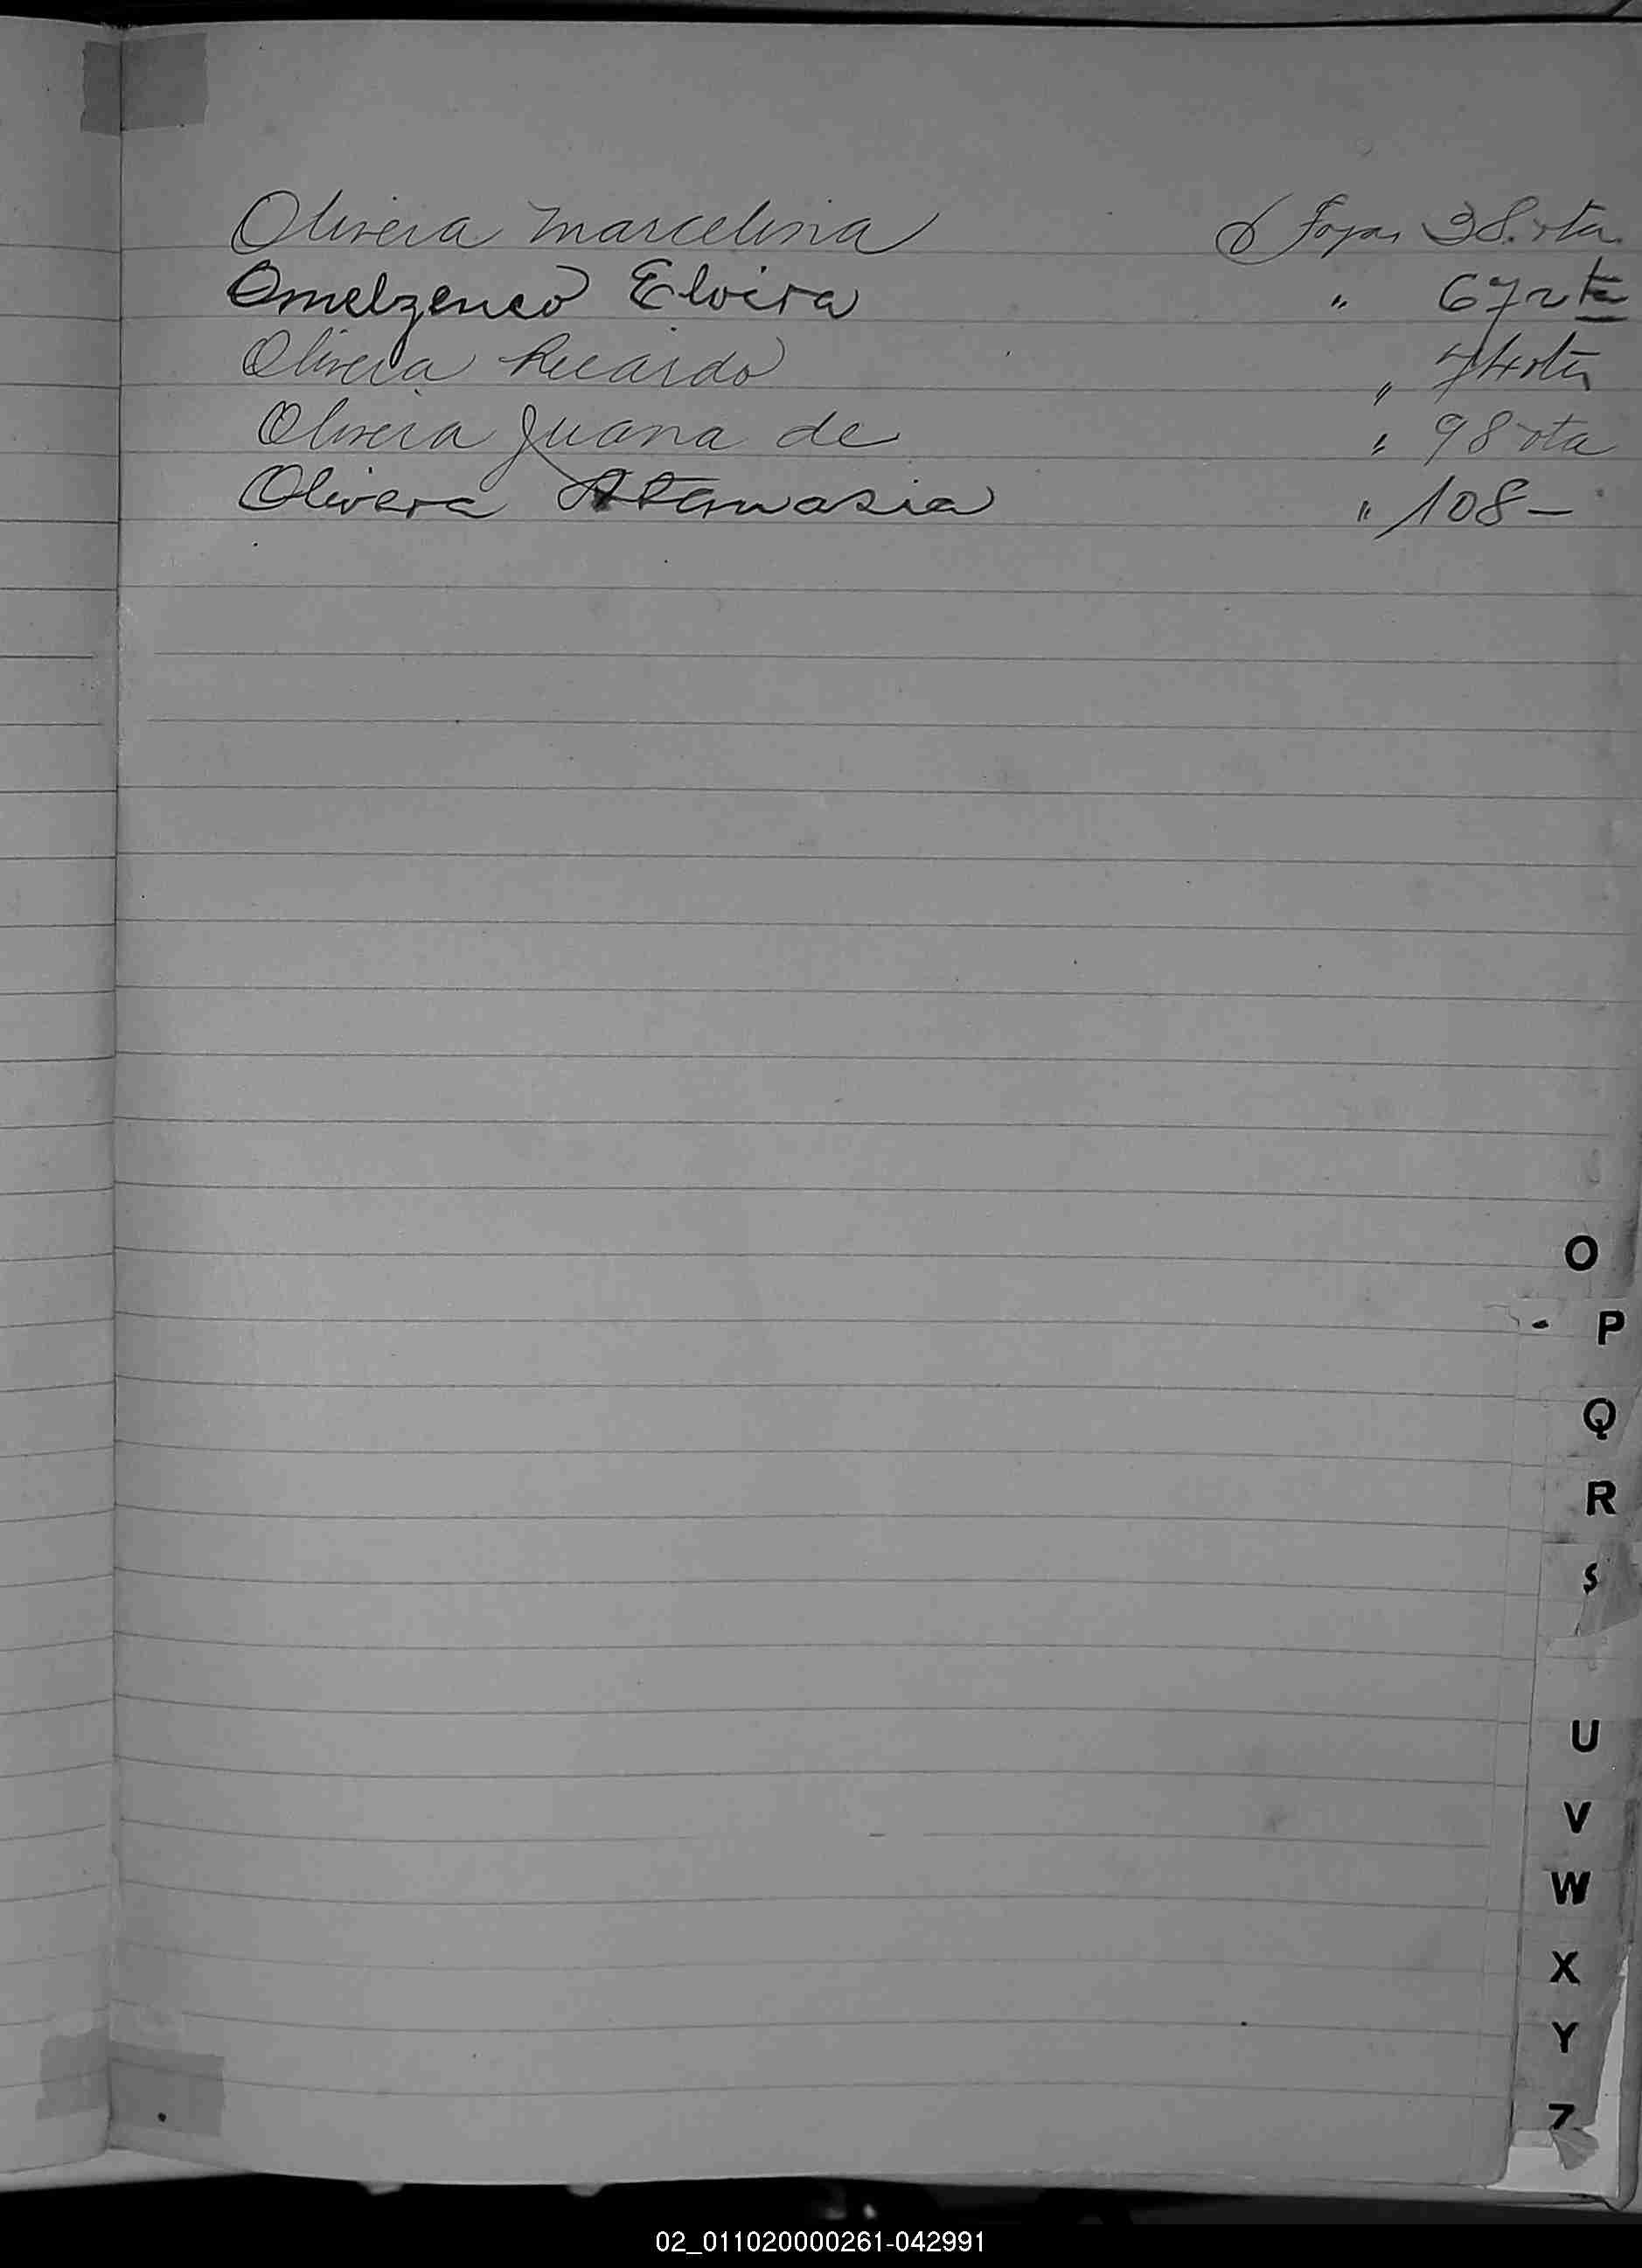 Olivera Marcelina a Fojas 38. vta.
Omelzenco Elvira " 67 vta
Olivera Ricardo " 74 vta
Olivera Juana de " 98 vta
Olivera Atanasia " 108 —
O
P
Q
R
S
U
V
W
X
Y
Z
02_011020000261-042991